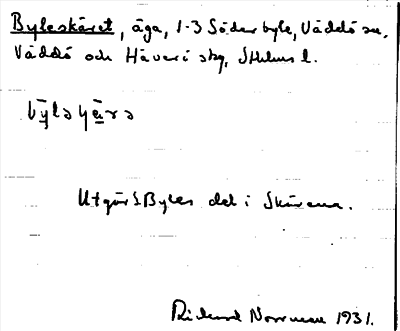 Byleskäret, äga, 1-3 Söderbyle, Väddö sn,
Väddö och Häverö skg, Sthlms l.
Utgör S. Byles del i Skären a.
Rickard Norrman 1931.